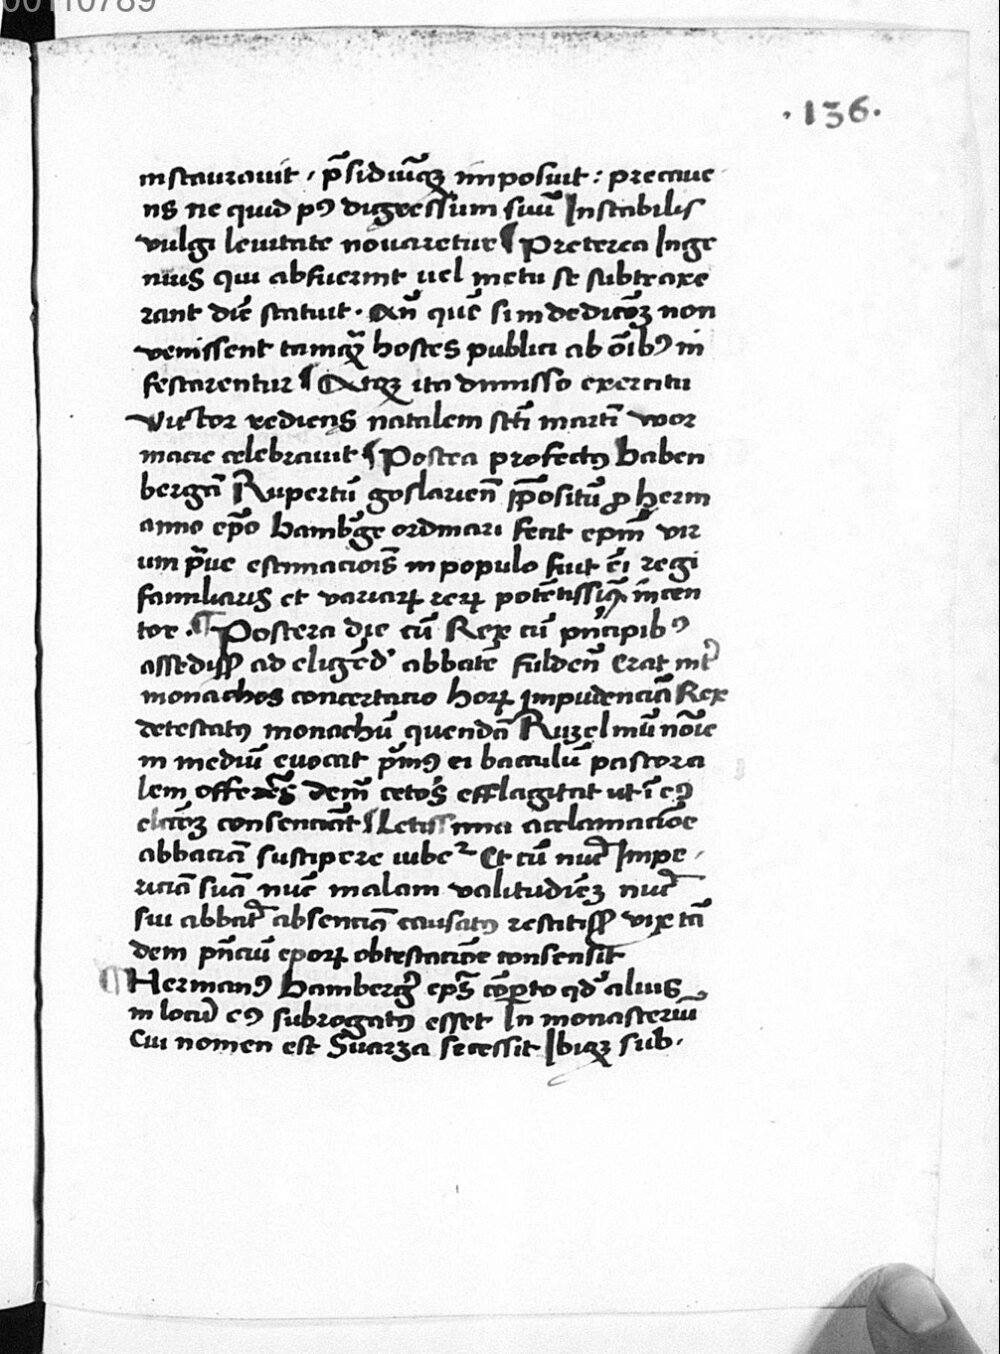 00110789
.136.
instaurauit , p̄sidiūqꝫ imposuit : precaue
ns ne quid pꝰ digressum suū Instabilis
vulgi leuitate nouaretur ¶ Preterea Inge
nuis qui abfuerint uel metu se subtraxe
rant diē statuit . An̄ quē si in dedicōꝫ non
venissent tamqᷓ hostes publici ab oīibꝰ in
festarentur ¶ Atqꝫ ita dimisso exercitu
Victor rediens natalem scti martī wor
macie celebrauit ¶ Postea profectꝰ Baben
bergā Rupertū goslarien̄ p̄positū ꝓ herm
anno ep̄o Bambꝰge ordinari fecit epīm vir
um p̄ue estimacioīs in populo fuit eī regi
familiaris et variaꝝ reꝝ potētissiꝰ incen
tor . ¶ Postera die cū Rex cū pn̄cipibꝰ
assediss ad eligēd abbatē fulden̄ Erat int
monachos concertacio hoꝝ Impudenciā Rex
detestatꝰ monachū quendā Ruzelmū noīe
in mediū euocat p̄mꝰ ei baculū pastora
lem offerēs dem̄ cetos efflagitat ut ī eꝰ
elcōꝫ consenciāt ¶ Letissima acclamacioē
abbaciā suscipere iubet Et cū nūc Impe
riciā suā nūc malam valitudiēꝫ nūc
sui abbat absenciā causatꝰ restitiss vix tā
dem pn̄ciū epoꝝ obtestacioē consensit
¶ Hermanꝰ Bamberg eps cōꝑto qd alius
in locū eꝰ subrogatꝰ esset In monasteriū
Cui nomen est Suarza secessit Ibiqꝫ sub.